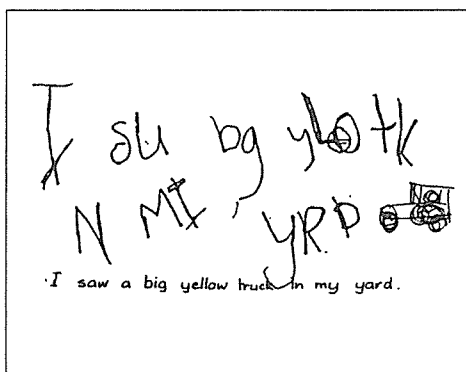 I su bg ylo tk
N MI YRD
I saw a big yellow truck in my yard.